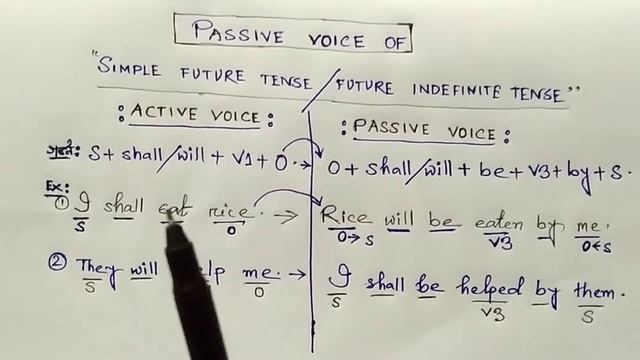 PASSIVE VOICE OF
"SIMPLE FUTURE TENSE / FUTURE INDEFINITE TENSE"
: ACTIVE VOICE :
: PASSIVE VOICE :
S + shall/will + V1 + O. →
O + shall/will + be + V3 + by + S.
Ex:
① I shall eat rice. →
S O
Rice will be eaten by me.
O→S V3 O←S
② They will help me. →
S O
I shall be helped by them.
S V3 S